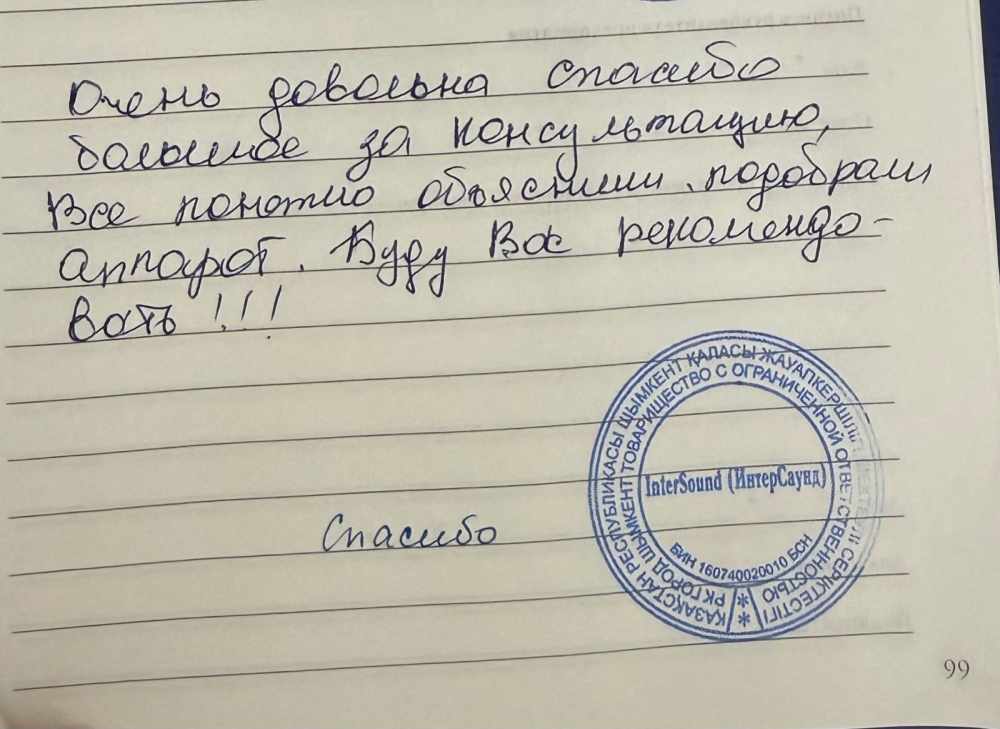 Очень довольна спасибо
большое за консультацию,
Все понятно объяснили, подобрали
аппарат. Буду Вас рекомендо-
вать !!!
Спасибо
ҚАЗАҚСТАН РЕСПУБЛИКАСЫ ШЫМКЕНТ ҚАЛАСЫ ЖАУАПКЕРШІЛІГІ ШЕКТЕУЛІ СЕРІКТЕСТІГІ
РК ГОРОД ШЫМКЕНТ ТОВАРИЩЕСТВО С ОГРАНИЧЕННОЙ ОТВЕТСТВЕННОСТЬЮ
InterSound (ИнтерСаунд)
БИН 160740020010 БСН
* *
99